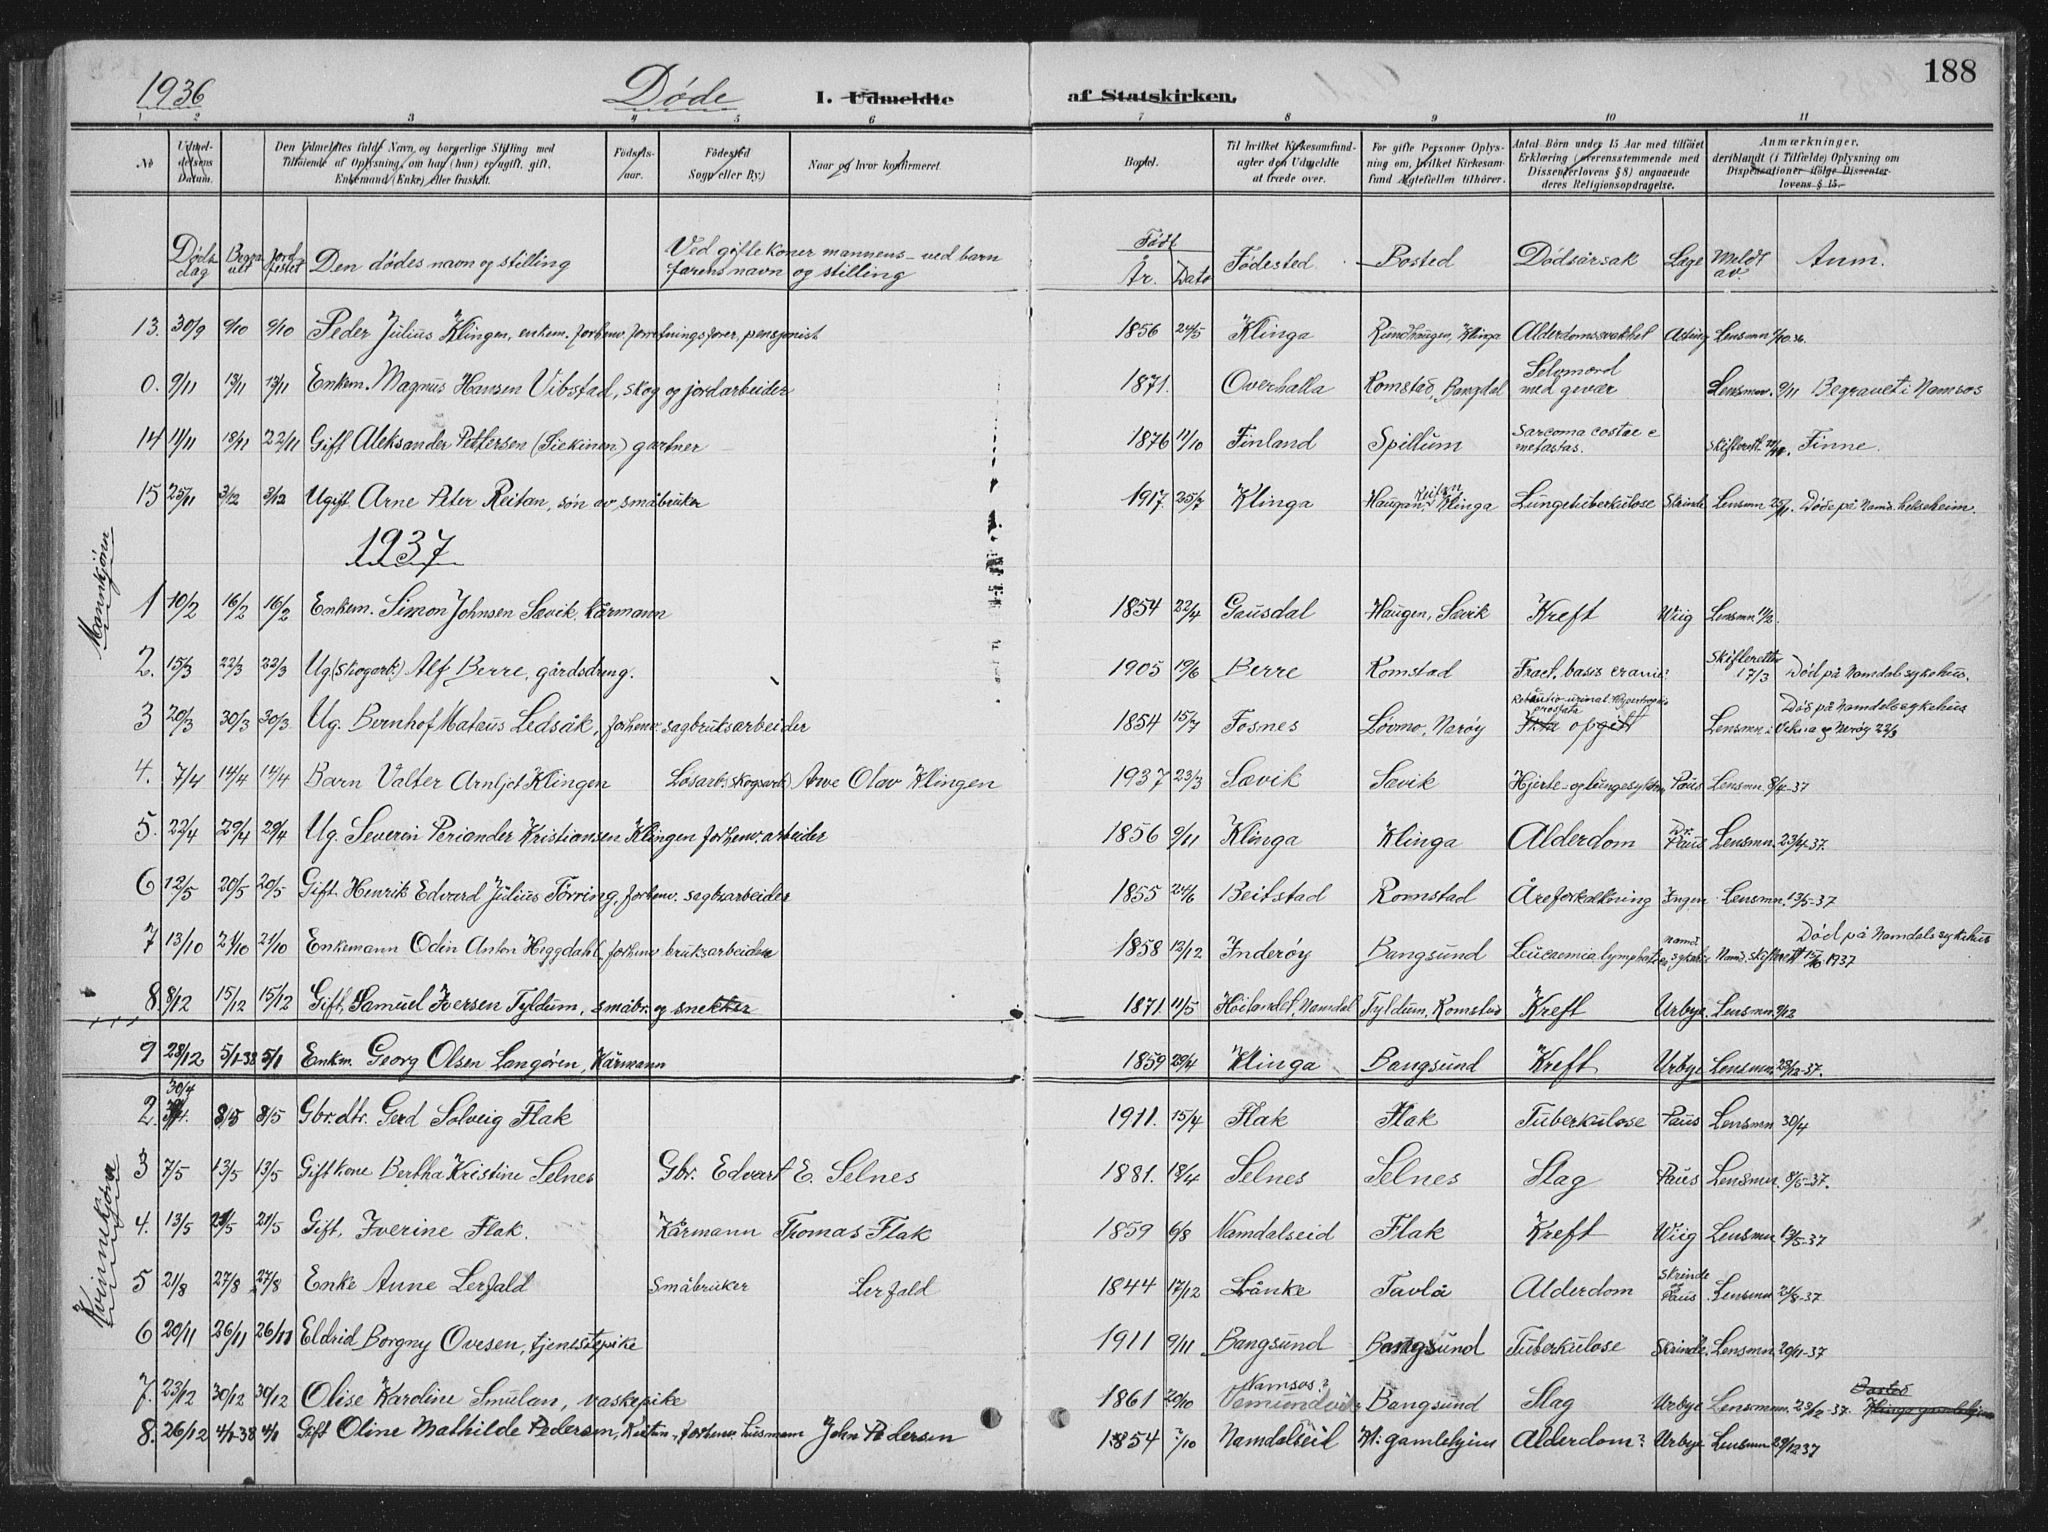 1936 Døde I. Udmeldte af Statskirken. 188
1 2 3 4 5 6 7 8 9 10 11
No Udmeldelsens Datum. Den Udmeldtes fulde Navn og borgerlige Stilling med Tilføiende af Oplysning, om han (hun) er ugift, gift, Enkemand (Enke) eller fraskilt. Fødselsaar. Fødested Sogn eller By.) Naar og hvor konfirmeret. Bopæl. Til hvilket Kirkesamfund agter den Udmeldte at træde over. For gifte Personer Oplysning om, hvilket Kirkesamfund Ægtefællen tilhører. Antal Børn under 15 Aar med tilføiet Erklæring (overensstemmende med Dissenterlovens § 8) angaaende deres Religionsopdragelse. Anmærkninger, deriblandt (i Tilfælde) Oplysning om Dispensationer ifølge Dissenterlovens § 15.
Døds dag Begravet Jordfestet Den dødes navn og stilling Ved gifte koner mannens - ved barn farens navn og stilling Født År. Dato Fødested Bosted Dødsårsak Læge Meldt av Anm.
13. 30/9 9/10 9/10 Peder Julius Klingen, enkem. forhenv. forretningsfører, pensjonist 1856 24/5 Klinga Rundhaugen, Klinga Alderdomssvakhet Lensmn
0. 9/11 13/11 13/11 Enkem. Magnus Hansen Vibstad, skog og jordarbeider 1871. Overhalla Romstad, Bangdal Selvmord med gevær Lensmn. 9/11 Begravet i Namsos
14 11/11 18/11 22/11 Gift Aleksander Pettersen (Siekinen) gartner 1876 11/10 Finland Spillum Sarcoma costae c metastas. Skifterett. Finne.
15 25/11 3/12 3/12 Ugift. Arne Peter Reitan, søn av småbruker 1917. 25/7 Klinga Haugan, Reitan Klinga Lungetuberkulose Skrinde Lensmn 25/11. Døde på Namd. helseheim.
1937
Mannkjønn
1 10/2 16/2 16/2 Enkem. Simon Johnsen Sævik, kårmann 1854 22/4 Gausdal Haugen, Sævik Kreft Wiig Lensmn. 11/2.
2. 15/3 22/3 22/3 Ug. (skogarb.) Alf Berre, gårdsdreng. 1905 19/6 Berre Romstad Fract. basis cranii Skifteretten 17/3 Død på Namdal sykehus.
3 20/3 30/3 30/3 Ug. Bernhof Mateus Ledsåk, forhenv. sagbruksarbeider 1854 15/7 Fosnes Løvmo, Nærøy prostata opgitt Lensmn i Vikna og Nærøy 22/3 Død på Namdal sykehus
4. 7/4 14/4 14/4 Barn Valter Arnljot Klingen Løsarb. (skogsarb.) Arve Olav Klingen 1937 23/3 Sævik Sævik Hjerte- og lungesykdom Paus Lensmn. 8/4-37
5. 22/4 29/4 29/4 Ug. Severin Periander Kristiansen Klingen forhenv. arbeider 1856 9/11 Klinga Klinga Alderdom Dr. Paus Lensmn. 23/4-37.
6 12/5 20/5 20/5 Gift. Henrik Edvard Julius Tørring, forhenv. sagbr.arbeider 1855 24/6 Beitstad Romstad Åreforkalkning Ingen Lensmn. 13/5-37
7 13/10 21/10 21/10 Enkemann Odin Anton Heggdahl, forhenv bruksarbeider 1858 12/12 Inderøy Bangsund Leucaemia lymphatica Namd. sykehus Namd. skifterett 15/10 1937 Død på Namdals sykehus
8 8/12 15/12 15/12 Gift, Samuel Iversen Tyldum, småbr. og snekker 1871. 11/5 Høilandet, Namdal Tyldum, Romstad Kreft Urbye Lensmn. 9/12
9 28/12 5/1-38 5/1 Enkm. Georg Olsen Langøren, Kårmann 1859 29/4 Klinga Bangsund Kreft Urbye Lensmn. 29/12-37.
Kvinnekjønn
2. 30/4 8/5 8/5 Gbr.dtr. Gerd Solveig Flak 1911. 15/4 Flak Flak Tuberkulose Paus Lensmn 30/4
3 7/5 13/5 13/5 Gift kone Bertha Kristine Selnes Gbr. Edvart E. Selnes 1881. 18/4 Selnes Selnes Slag Paus Lensmn. 8/5-37.
4. 13/5 21/5 21/5 Gift, Iverine Flak. Kårmann Thomas Flak 1859 6/8 Namdalseid Flak Kreft Wiig Lensmn 13/5-37
5 21/8 27/8 27/8 Enke Anne Lerfald Småbruker Lerfald 1844 17/12 Lånke Tavlå Alderdom Skrinde og Paus Lensmn 21/8-37
6 20/11 26/11 26/11 Eldrid Borgny Ovesen, tjenestepike 1911 9/11 Bangsund Bangsund Tuberkulose Skrinde Lensmn. 20/11-37
7. 23/12 30/12 30/12 Olise Karoline Smulan, vaskepike 1861 20/10 Namsos? Vemundvik Bangsund Slag Urbye Lensmn. 23/12-37.
8. 26/12 4/1-38 4/1 Gift Oline Mathilde Pedersen, forhenv. husmann John Pedersen 1854 1/10 Namdalseid Kl. gamlehjem Alderdom? Urbye Lensmn 29/12 37